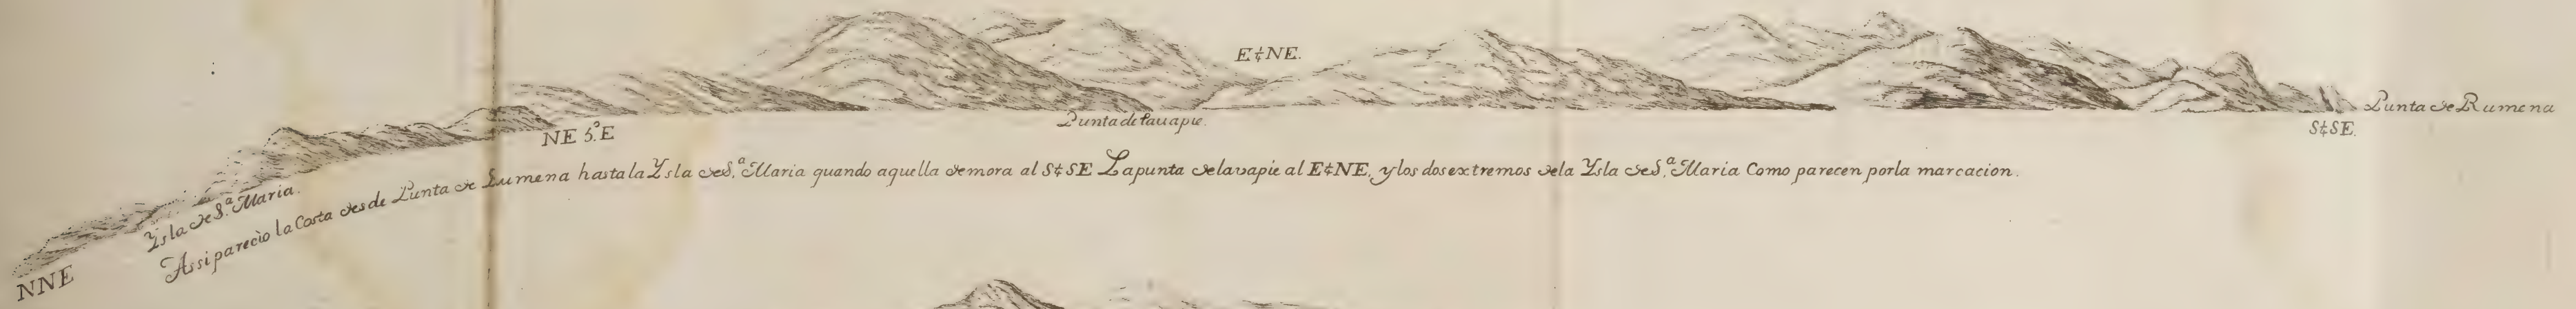 E¼NE.
Punta de Rumena
Punta de lauapie.
S¼SE.
NE 5.° E
Ysla de S.ª Maria.
NNE
Assi pareciò la Costa desde Punta de Rumena hasta la Ysla de S.ª Maria quando aquella demora al S¼SE La punta de lavapie al E¼NE. y los dos extremos de la Ysla de S.ª Maria Como parecen por la marcacion.